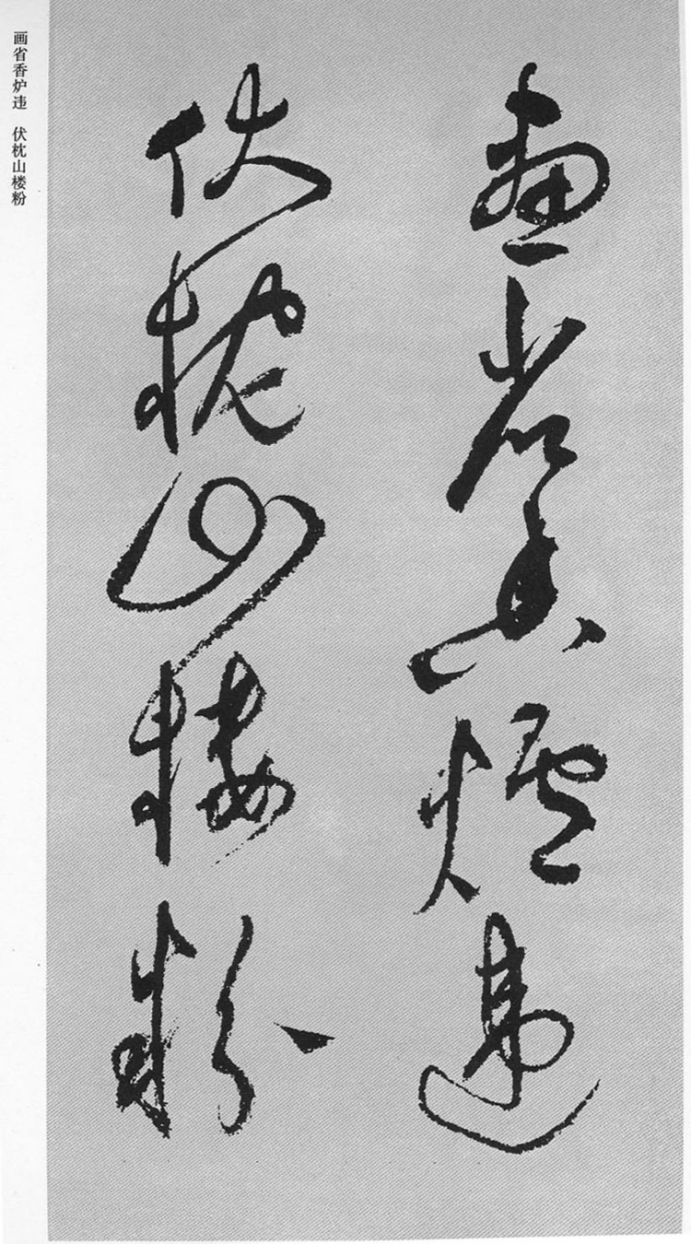 畫省香爐違
伏枕山樓粉
画省香炉违 伏枕山楼粉